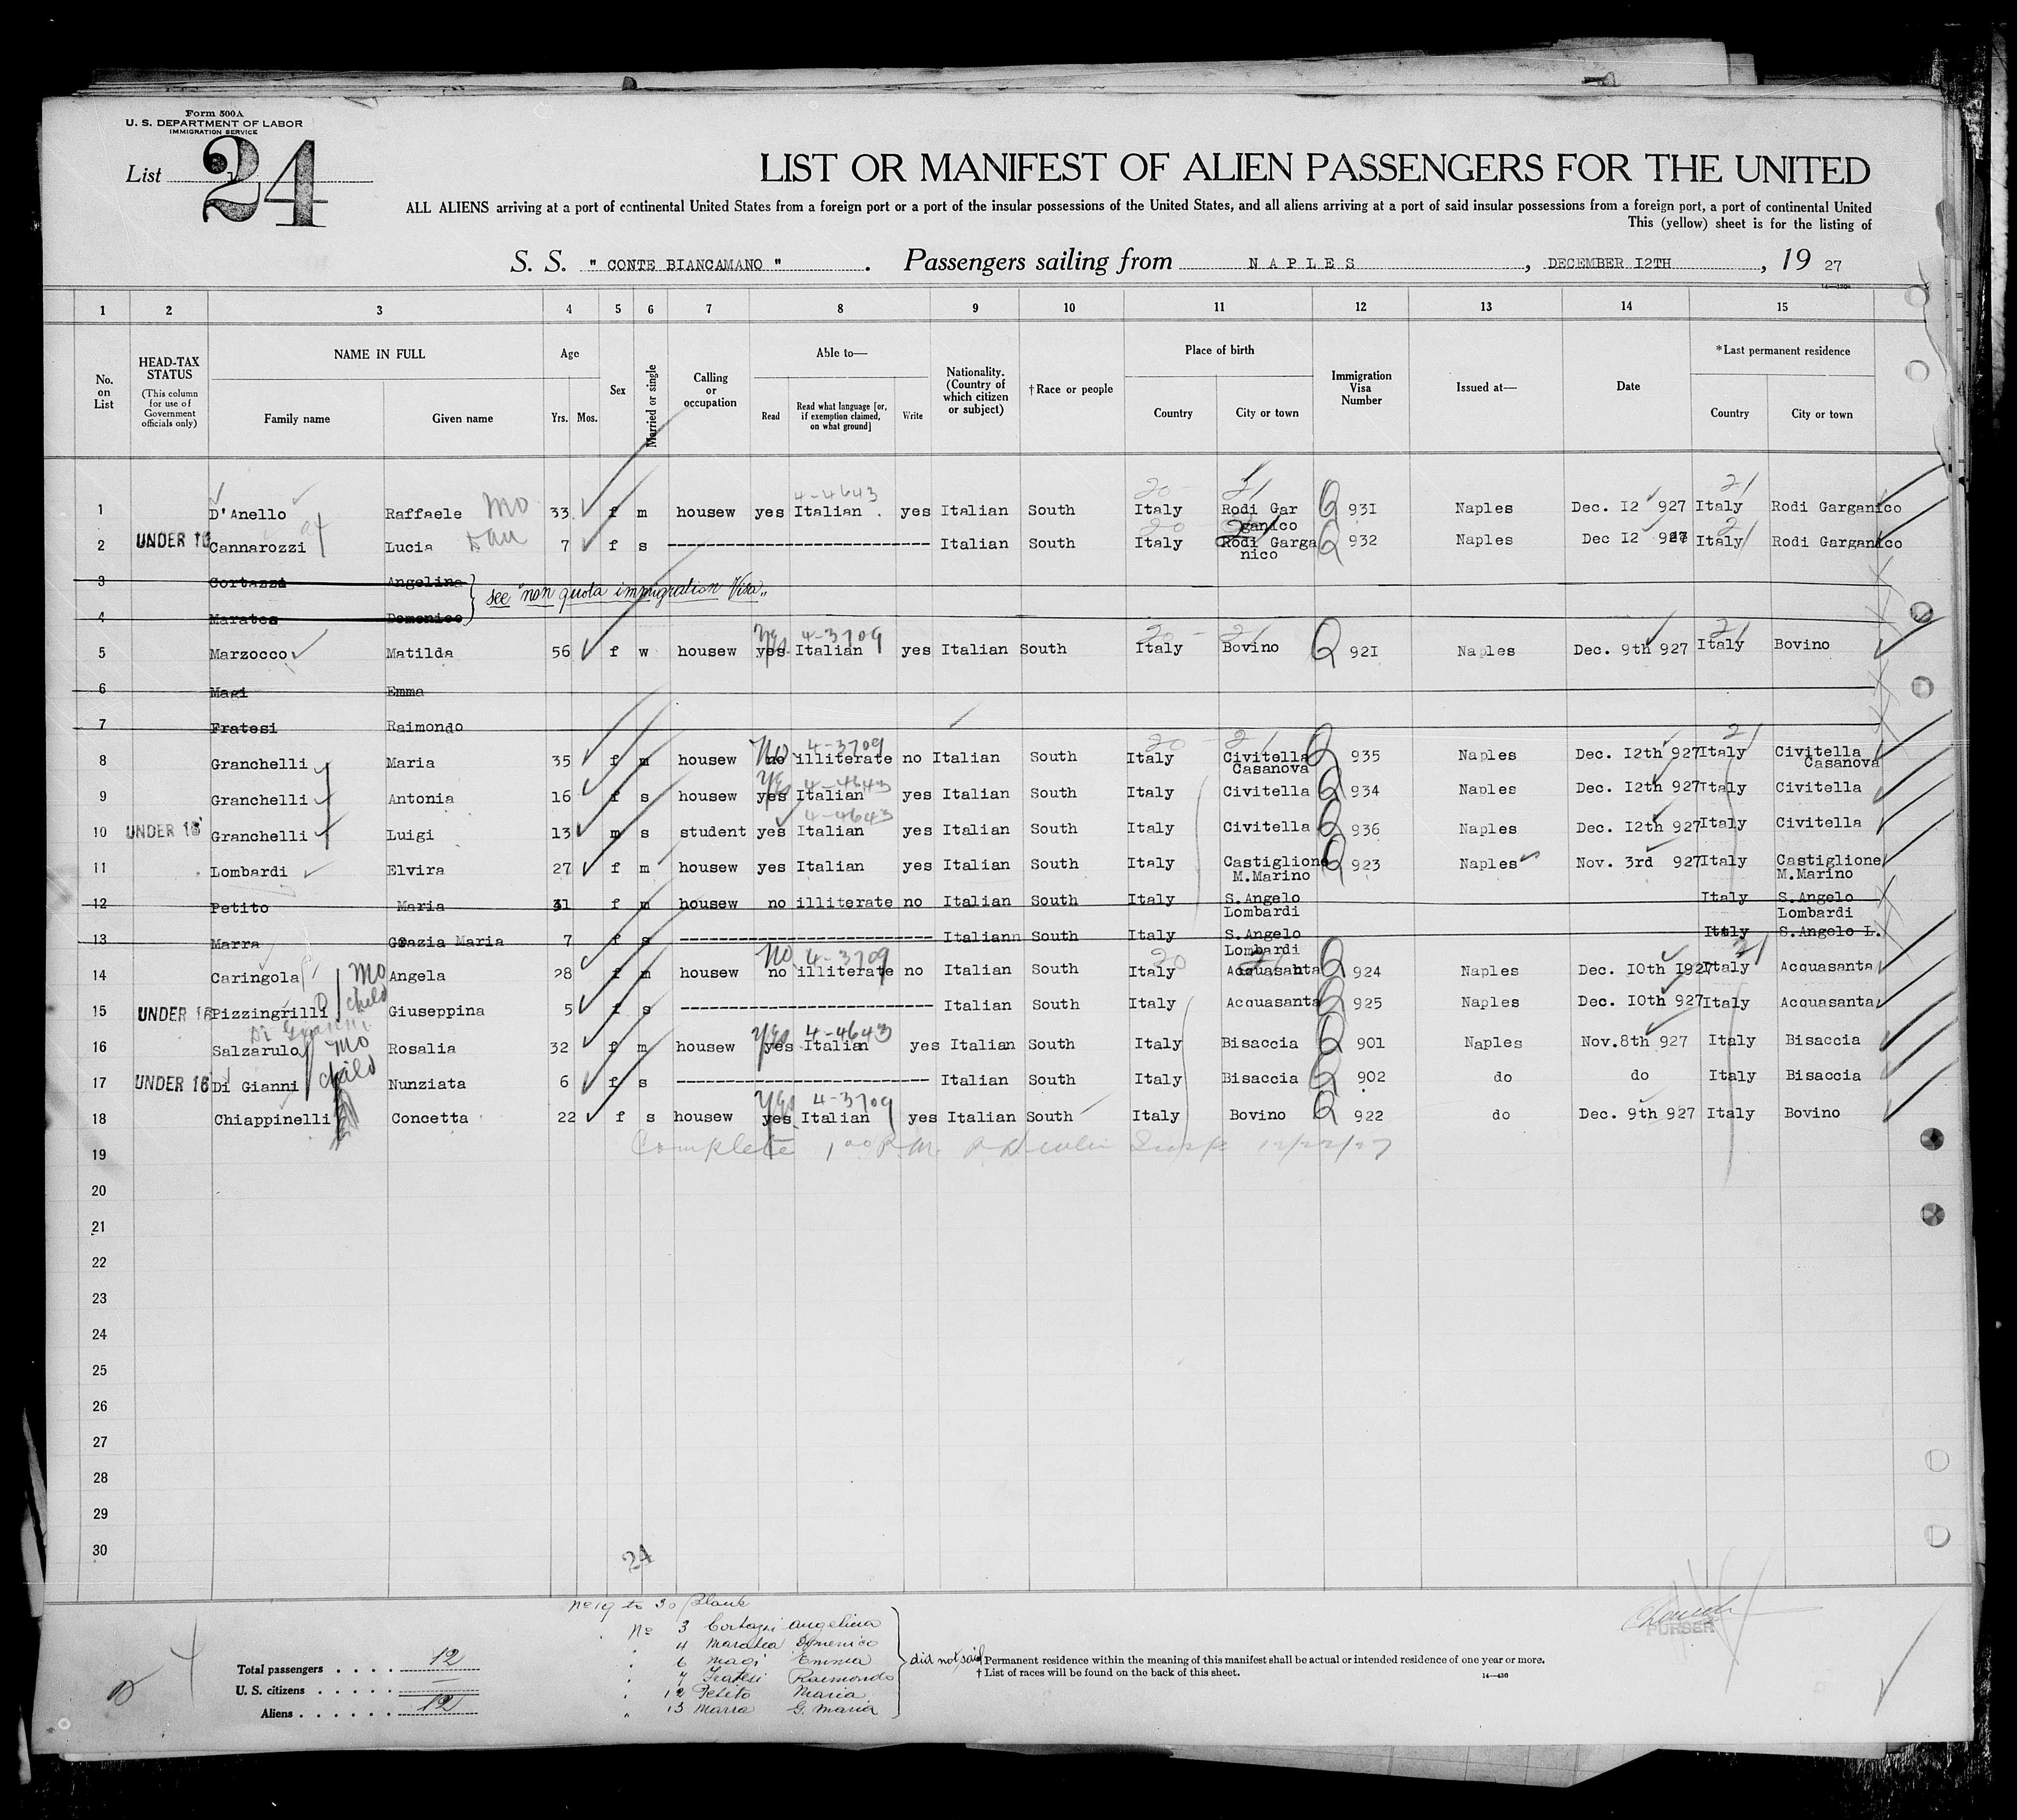 Form 500A
U. S. DEPARTMENT OF LABOR
IMMIGRATION SERVICE
List 24
LIST OR MANIFEST OF ALIEN PASSENGERS FOR THE UNITED
ALL ALIENS arriving at a port of continental United States from a foreign port or a port of the insular possessions of the United States, and all aliens arriving at a port of said insular possessions from a foreign port, a port of continental United
This (yellow) sheet is for the listing of
S. S. " CONTE BIANCAMANO " . Passengers sailing from N A P L E S , DECEMBER I2TH , 19 27
1 2 3 4 5 6 7 8 9 10 11 12 13 14 15
No. on List
HEAD-TAX STATUS
(This column for use of Government officials only)
NAME IN FULL
Family name Given name
Age
Yrs. Mos.
Sex
Married or single
Calling or occupation
Able to—
Read
Read what language [or, if exemption claimed, on what ground]
Write
Nationality. (Country of which citizen or subject)
†Race or people
Place of birth
Country City or town
Immigration Visa Number
Issued at—
Date
*Last permanent residence
Country City or town
4-4643 20 21 21
1 D'Anello Raffaele Mo 33 f m housew yes Italian yes Italian South Italy Rodi Gar ganico Q 93I Naples Dec. I2 927 Italy Rodi Garganico
2 UNDER 16 Cannarozzi Lucia Dau 7 f s Italian South Italy Rodi Garga nico Q 932 Naples Dec I2 927 Italy Rodi Garganico
3 Cortazzi Angelina
see "non quota immigration Visa"
4 Maratea Domenico
5 Marzocco Matilda 56 f w housew yes Yes Italian 4-3709 yes Italian South Italy Bovino Q 92I Naples Dec. 9th 927 Italy Bovino
6 Magi Emma
7 Fratesi Raimondo
8 Granchelli Maria 35 f m housew no No illiterate 4-3709 no Italian South Italy Civitella Casanova Q 935 Naples Dec. I2th 927 Italy Civitella Casanova
9 Granchelli Antonia 16 f s housew yes Yes Italian 4-4643 yes Italian South Italy Civitella Q 934 Naples Dec. I2th 927 Italy Civitella
10 UNDER 16 Granchelli Luigi 13 m s student yes Italian 4-4643 yes Italian South Italy Civitella Q 936 Naples Dec. I2th 927 Italy Civitella
11 Lombardi Elvira 27 f m housew yes Italian yes Italian South Italy Castiglione M.Marino Q 923 Naples Nov. 3rd 927 Italy Castiglione M.Marino
12 Petito Maria 31 f m housew no illiterate no Italian South Italy S.Angelo Lombardi Italy S.Angelo Lombardi
13 Marra Grazia Maria 7 f s Italiann South Italy S.Angelo Lombardi Italy S.Angelo L.
14 Caringola Mo Angela 28 f m housew no No illiterate 4-3709 no Italian South Italy Acquasanta Q 924 Naples Dec. IOth I927 Italy Acquasanta
15 UNDER 16 Pizzingrilli child Giuseppina 5 f s Italian South Italy Acquasanta Q 925 Naples Dec. IOth 927 Italy Acquasanta
Di Gianni
16 Salzarulo Mo Rosalia 32 f m housew yes Yes Italian 4-4643 yes Italian South Italy Bisaccia Q 901 Naples Nov.8th 927 Italy Bisaccia
17 UNDER 16 Di Gianni child Nunziata 6 f s Italian South Italy Bisaccia Q 902 do do Italy Bisaccia
18 Chiappinelli Concetta 22 f s housew yes Yes Italian 4-3709 yes Italian South Italy Bovino Q 922 do Dec. 9th 927 Italy Bovino
19 Complete 1 00 P.M. 12/22/27
20
21
22
23
24
25
26
27
28
29
30
24
No 19 to 30 Blank
No 3 Cortazzi Angelina
" 4 Maratea Domenico
" 6 Magi Emma
" 7 Fratesi Raimondo
" 12 Petito Maria
" 13 Marra G. Maria
did not sail
Total passengers . . . . 12
U. S. citizens . . . . . —
Aliens . . . . . . 12
* Permanent residence within the meaning of this manifest shall be actual or intended residence of one year or more.
† List of races will be found on the back of this sheet.
14—430
PURSER